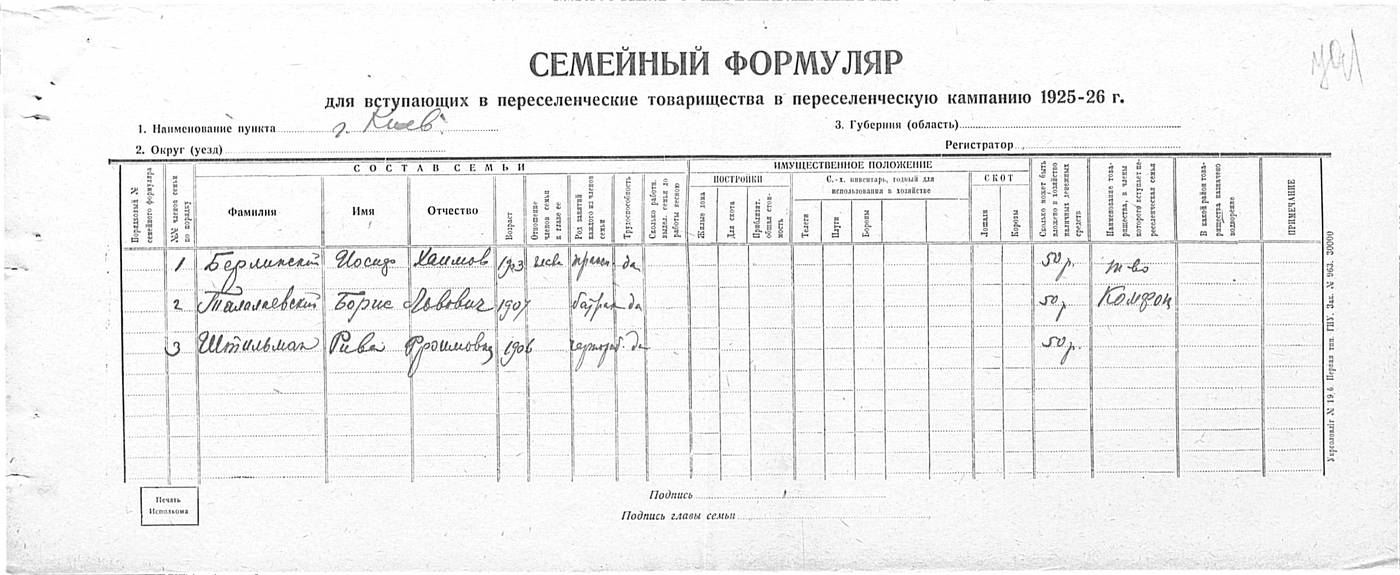 СЕМЕЙНЫЙ ФОРМУЛЯР
для вступающих в переселенческие товарищества в переселенческую кампанию 1925-26 г.
1. Наименование пункта г. Киев
3. Губерния (область)
2. Округ (уезд)
Регистратор
Порядковый № семейного формуляра
№№ членов семьи по порядку
СОСТАВ СЕМЬИ
Фамилия
Имя
Отчество
Возраст
Отношение членов семьи к главе ее
Род занятий каждого из членов семьи
Трудоспособность
Сколько работн. выдел. семья до работы весною
ИМУЩЕСТВЕННОЕ ПОЛОЖЕНИЕ
ПОСТРОЙКИ
Жилые дома
Для скота
Приблизит. общая стоимость
С.-х. инвентарь, годный для использования в хозяйстве
Телеги
Плуги
Бороны
СКОТ
Лошади
Коровы
Сколько может быть вложено в хозяйство наличных денежных средств
Наименование товарищества, в члены которого вступает переселенческая семья
В какой район товарищества назначено водворение
ПРИМЕЧАНИЕ
1 Берлинский Иосиф Хаимов 1903 да 50 р. т-во
2 Талалаевский Борис Львович 1907 батрак да 50 р.
3 Штильман Рива Фроимовна 1906 чернораб. да 50 р.
Печать Исполкома
Подпись
Подпись главы семьи
Укрголовліт № 19,6. Первая тип. ГПУ. Зак. № 963. 30000